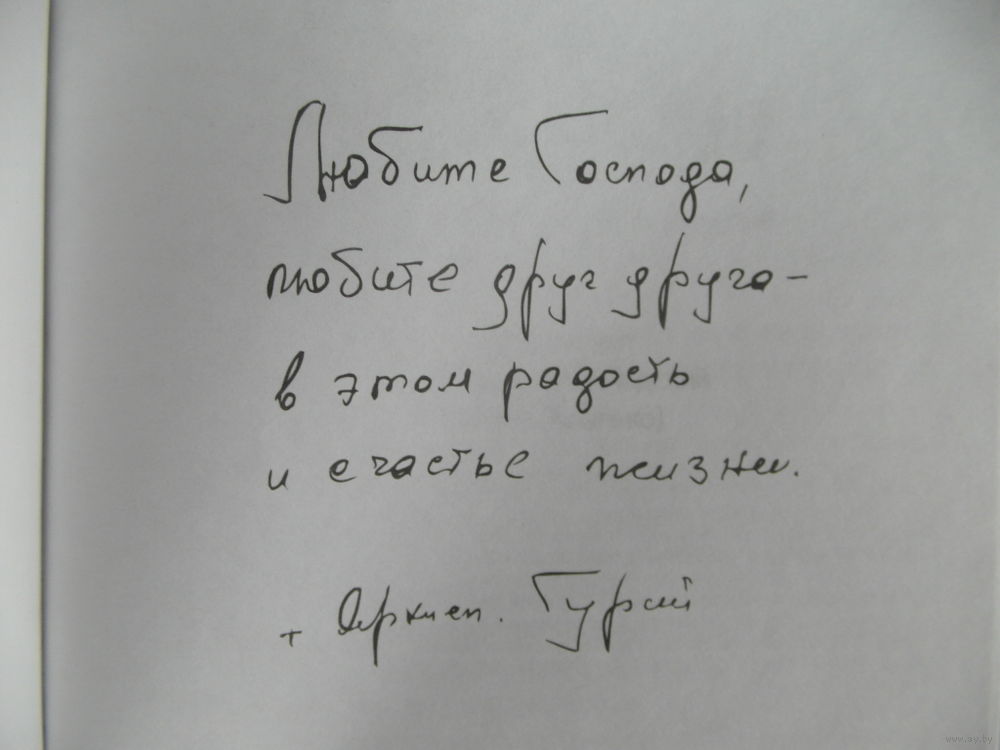 Любите Господа,
любите друг друга –
в этом радость
и счастье жизни.
+ Архиеп. Гурий
www.ay.by